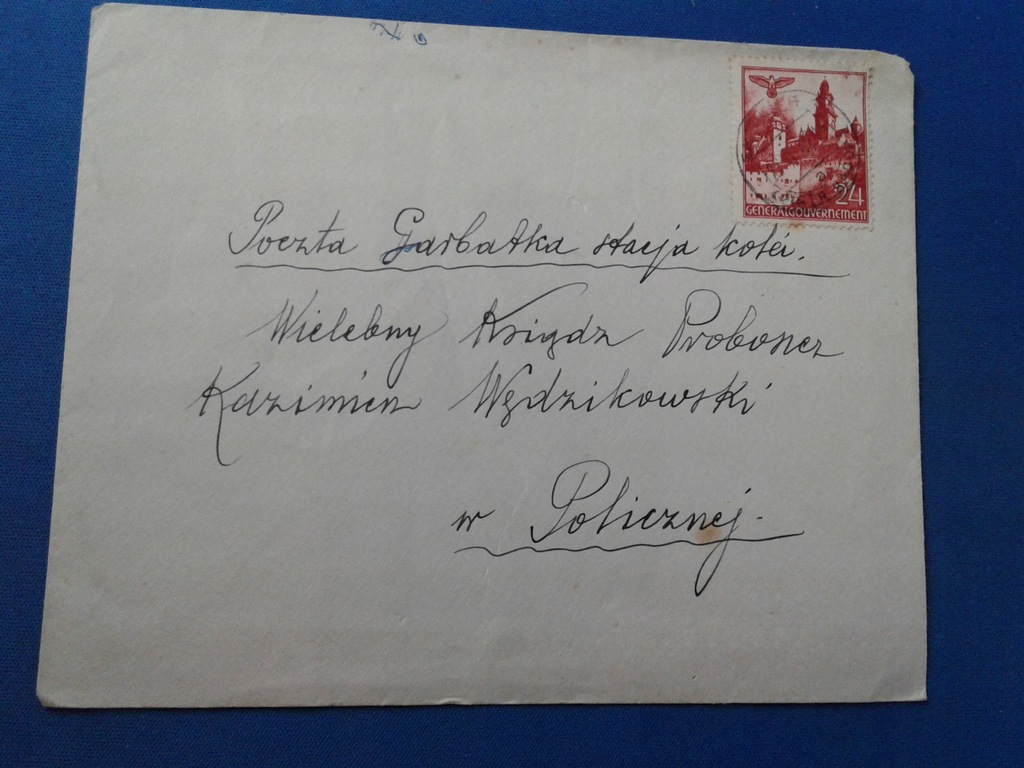 24
GENERALGOUVERNEMENT
Poczta Garbatka stacja kolei.
Wielebny Ksiądz Proboszcz
Kazimierz Wędzikowski
w Policznej.